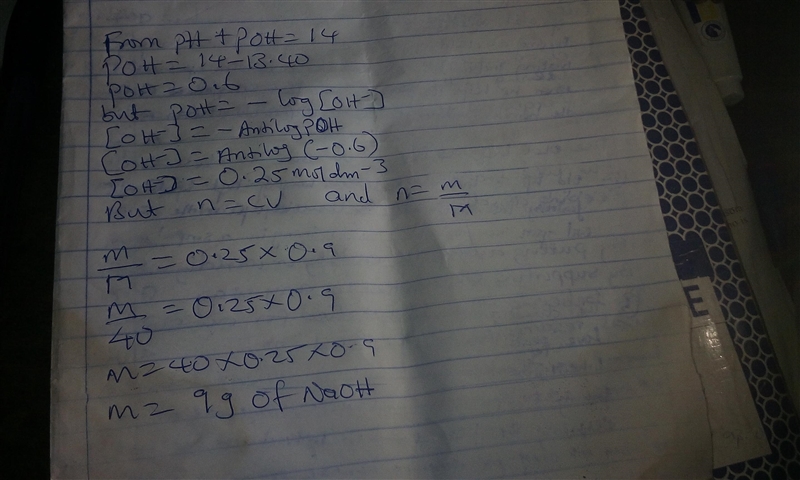 From PH + POH = 14
POH = 14-13.40
POH = 0.6
but POH = - log[OH-]
[OH-] = -Antilog POH
[OH-] = Antilog (-0.6)
[OH-] = 0.25 moldm-3
But n = CV and n = m/M
m/M = 0.25 x 0.9
m/40 = 0.25 x 0.9
m = 40 x 0.25 x 0.9
m = 9g of NaOH
E